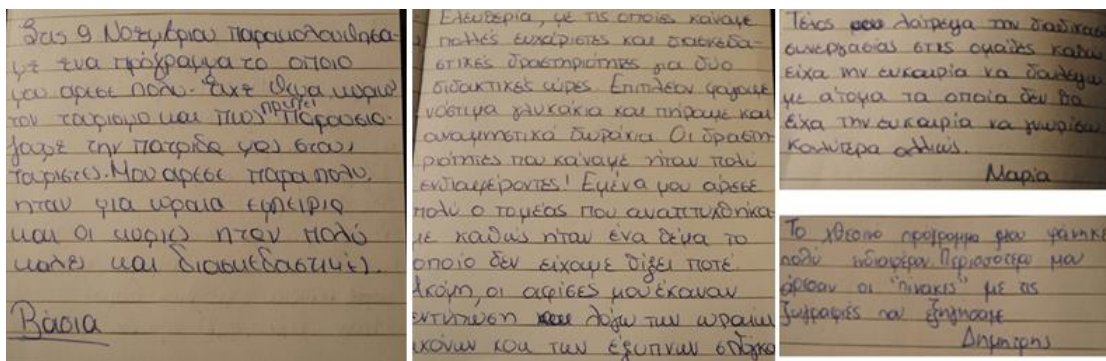 Στις 9 Νοεμβρίου παρακολουθήσα-
με ένα πρόγραμμα το οποίο
μου άρεσε πολύ. Είχε θέμα κυρίως
τον τουρισμό και πως πρέπει παρουσιά-
ζουμε την πατρίδα μας στους
τουρίστες. Μου άρεσε πάρα πολύ,
ήταν μια ωραία εμπειρία
και οι κυρίες ήταν πολύ
καλές και διασκεδαστικές.
Βάσια
Ελευθερία, με τις οποίες κάναμε
πολλές ευχάριστες και διασκεδα-
στικές δραστηριότητες για δύο
διδακτικές ώρες. Επιπλέον φάγαμε
νόστιμα γλυκάκια και πήραμε και
αναμνηστικά δωράκια. Οι δραστη-
ριότητες που κάναμε ήταν πολύ
ενδιαφέροντες! Εμένα μου άρεσε
πολύ ο τομέας που αναπτυχθήκα-
με καθώς ήταν ένα θέμα το
οποίο δεν είχαμε θίξει ποτέ.
Ακόμη, οι αφίσες μου έκαναν
εντύπωση λόγω των ωραίων
εικόνων και των έξυπνων σλόγκα
Τέλος λάτρεψα την διαδικασί
συνεργασίας στις ομάδες καθώς
είχα την ευκαιρία να δουλέψω
με άτομα τα οποία δεν θα
είχα την ευκαιρία να γνωρίσω
καλύτερα αλλιώς.
Μαρία
Το χθεσινο πρόγραμμα μου φάνηκε
πολύ ενδιαφέρον. Περισσότερο μου
άρεσαν οι "πίνακες" με τις
ζωγραφιές που εξηγήσαμε
Δημήτρης